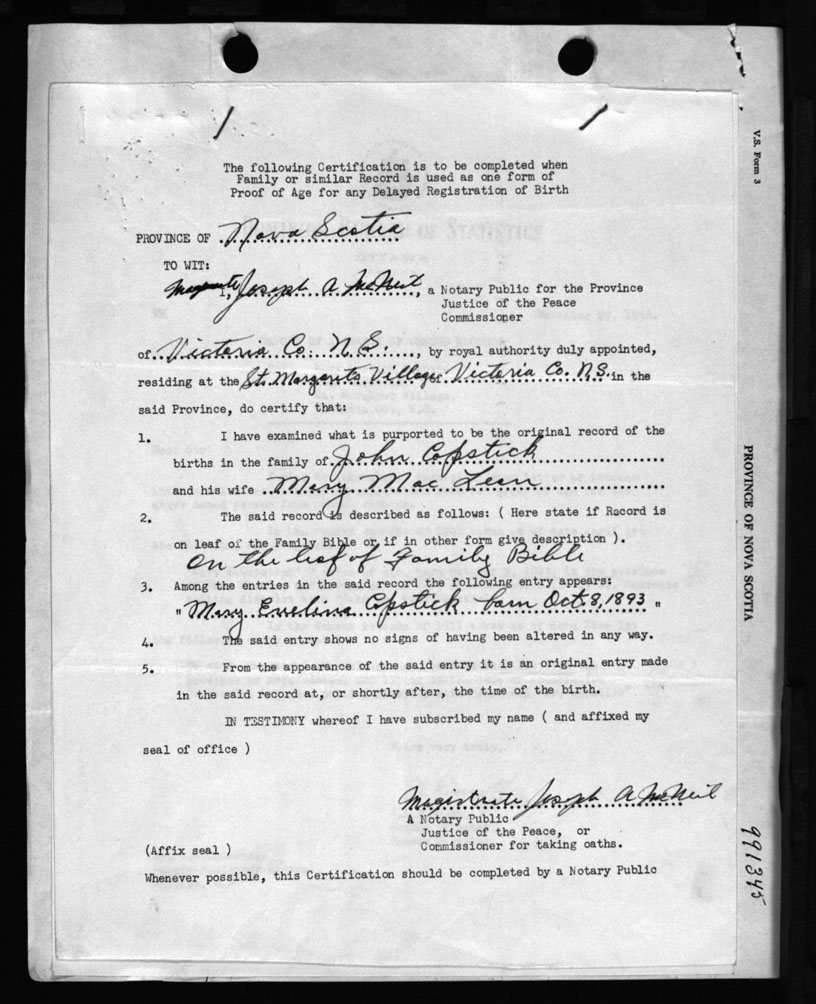 The following Certification is to be completed when
Family or similar Record is used as one form of
Proof of Age for any Delayed Registration of Birth
PROVINCE OF Nova Scotia
TO WIT:
I, Joseph A McNeil, a Notary Public for the Province
Justice of the Peace
Commissioner
of Victoria Co. N.S., by royal authority duly appointed,
residing at the St. Margarets Village Victoria Co. N.S. in the
said Province, do certify that:
1. I have examined what is purported to be the original record of the
births in the family of John Copstick
and his wife Mary Mac Lean
2. The said record is described as follows: ( Here state if Record is
on leaf of the Family Bible or if in other form give description ).
On the leaf of Family Bible
3. Among the entries in the said record the following entry appears:
" Mary Evelina Copstick born Oct. 8, 1893 "
4. The said entry shows no signs of having been altered in any way.
5. From the appearance of the said entry it is an original entry made
in the said record at, or shortly after, the time of the birth.
IN TESTIMONY whereof I have subscribed my name ( and affixed my
seal of office )
Magistrate Joseph A McNeil
A Notary Public
Justice of the Peace, or
Commissioner for taking oaths.
(Affix seal )
Whenever possible, this Certification should be completed by a Notary Public
V.S. Form 3
PROVINCE OF NOVA SCOTIA
991345